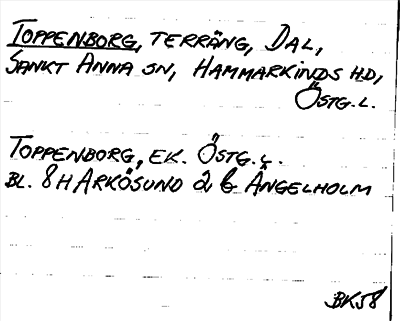 TOPPENBORG, TERRÄNG, DAL,
SANKT ANNA SN, HAMMARKINDS HD,
ÖSTG. L.
TOPPENBORG, EK. ÖSTG. L.
BL. 8H ARKÖSUND 2 b ÄNGELHOLM
BK58